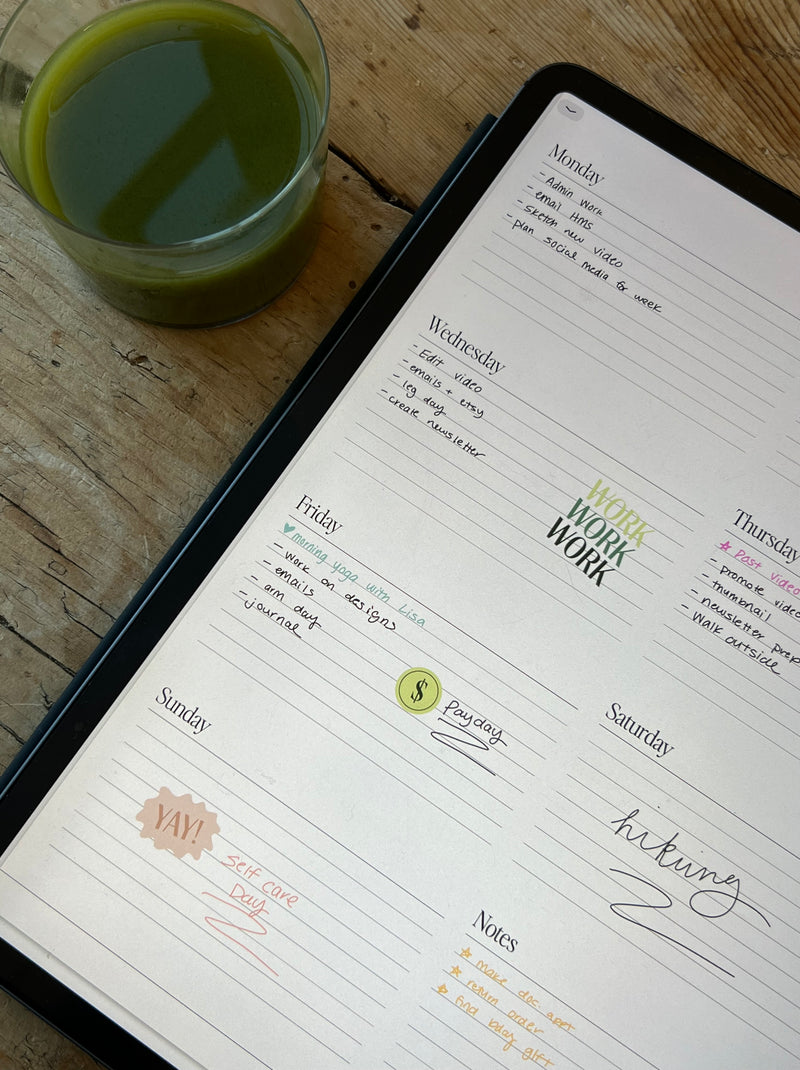 Monday
- Admin Work
- email HMS
- sketch new video
- plan social media for week
Wednesday
- Edit video
- emails + etsy
- leg day
- create newsletter
WORK
WORK
WORK
Thursday
Post video
- promote video
- thumbnail
- newsletter prep
- walk outside
Friday
morning yoga with Lisa
- work on designs
- emails
- arm day
- journal
$
Payday
Saturday
hiking
Sunday
YAY!
self care
Day
Notes
make doc appt
return order
find bday gift